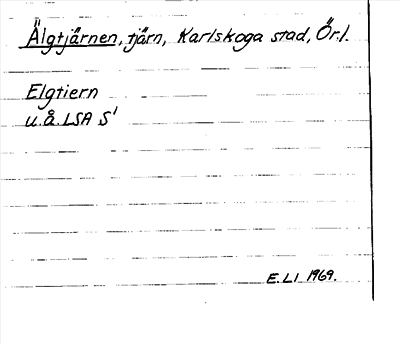 Älgtjärnen, tjärn, Karlskoga stad, Ör.l.
Elgtiern
u.å. LSA S¹
E.LI 1969.